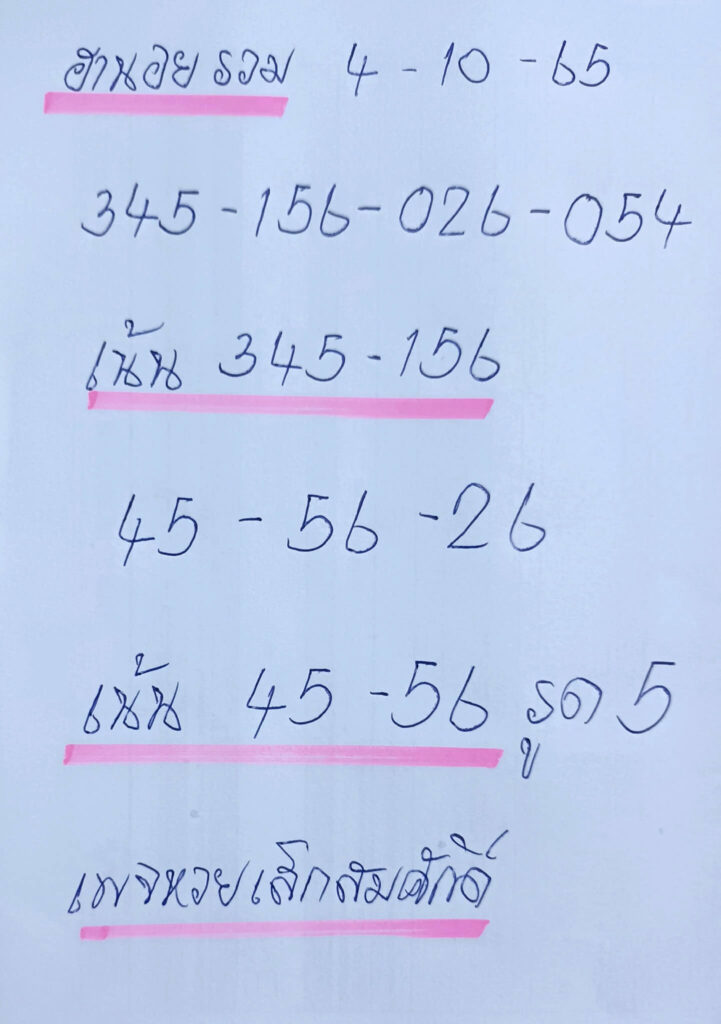 ฮานอย รวม 4 - 10 - 65
345 - 156 - 026 - 054
เน้น 345 - 156
45 - 56 - 26
เน้น 45 - 56 รูด 5
เพจหวยเล็กสมศักดิ์